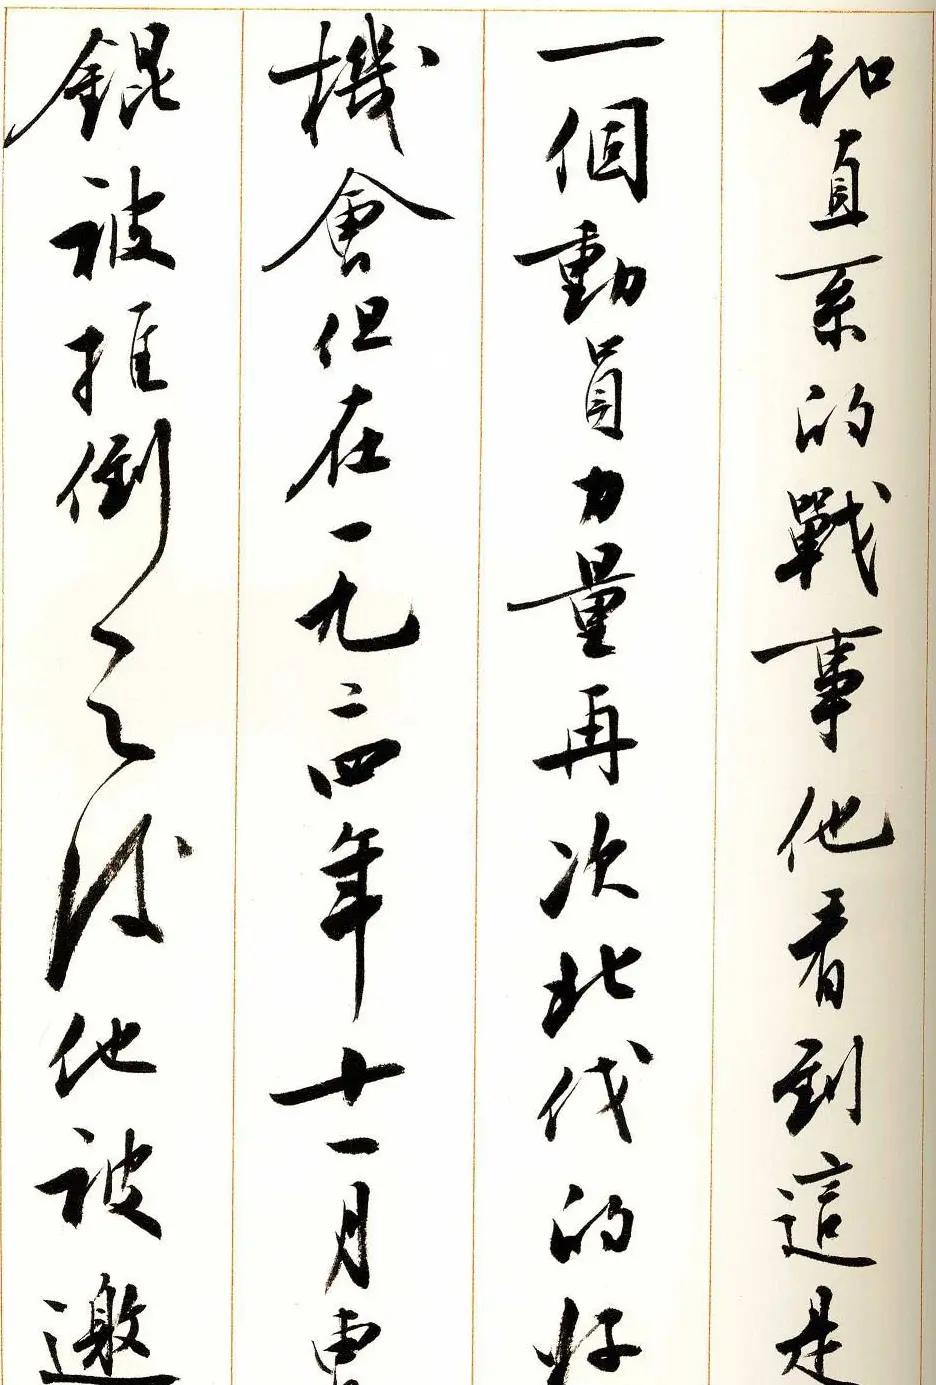 和直系的戰事他看到這是
一個動員力量再次北伐的好
機會但在一九二四年十一月曹
錕被推倒之後他被邀